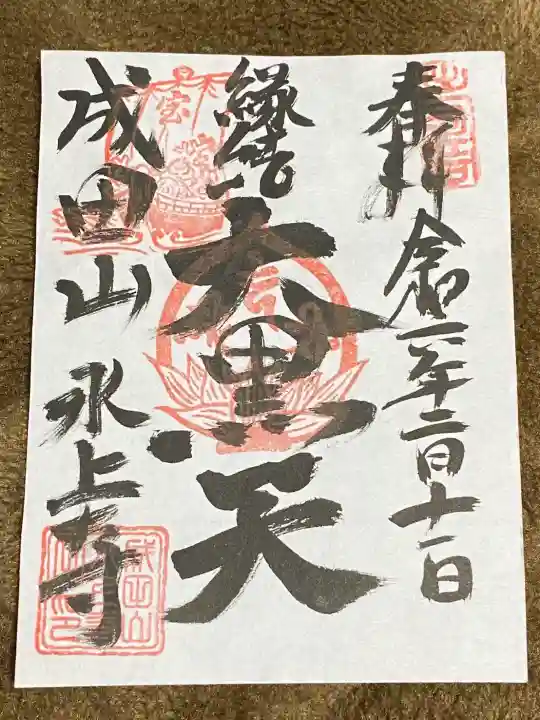 奉拝
令和二年二月十一日
大黒天
成田山
水上寺